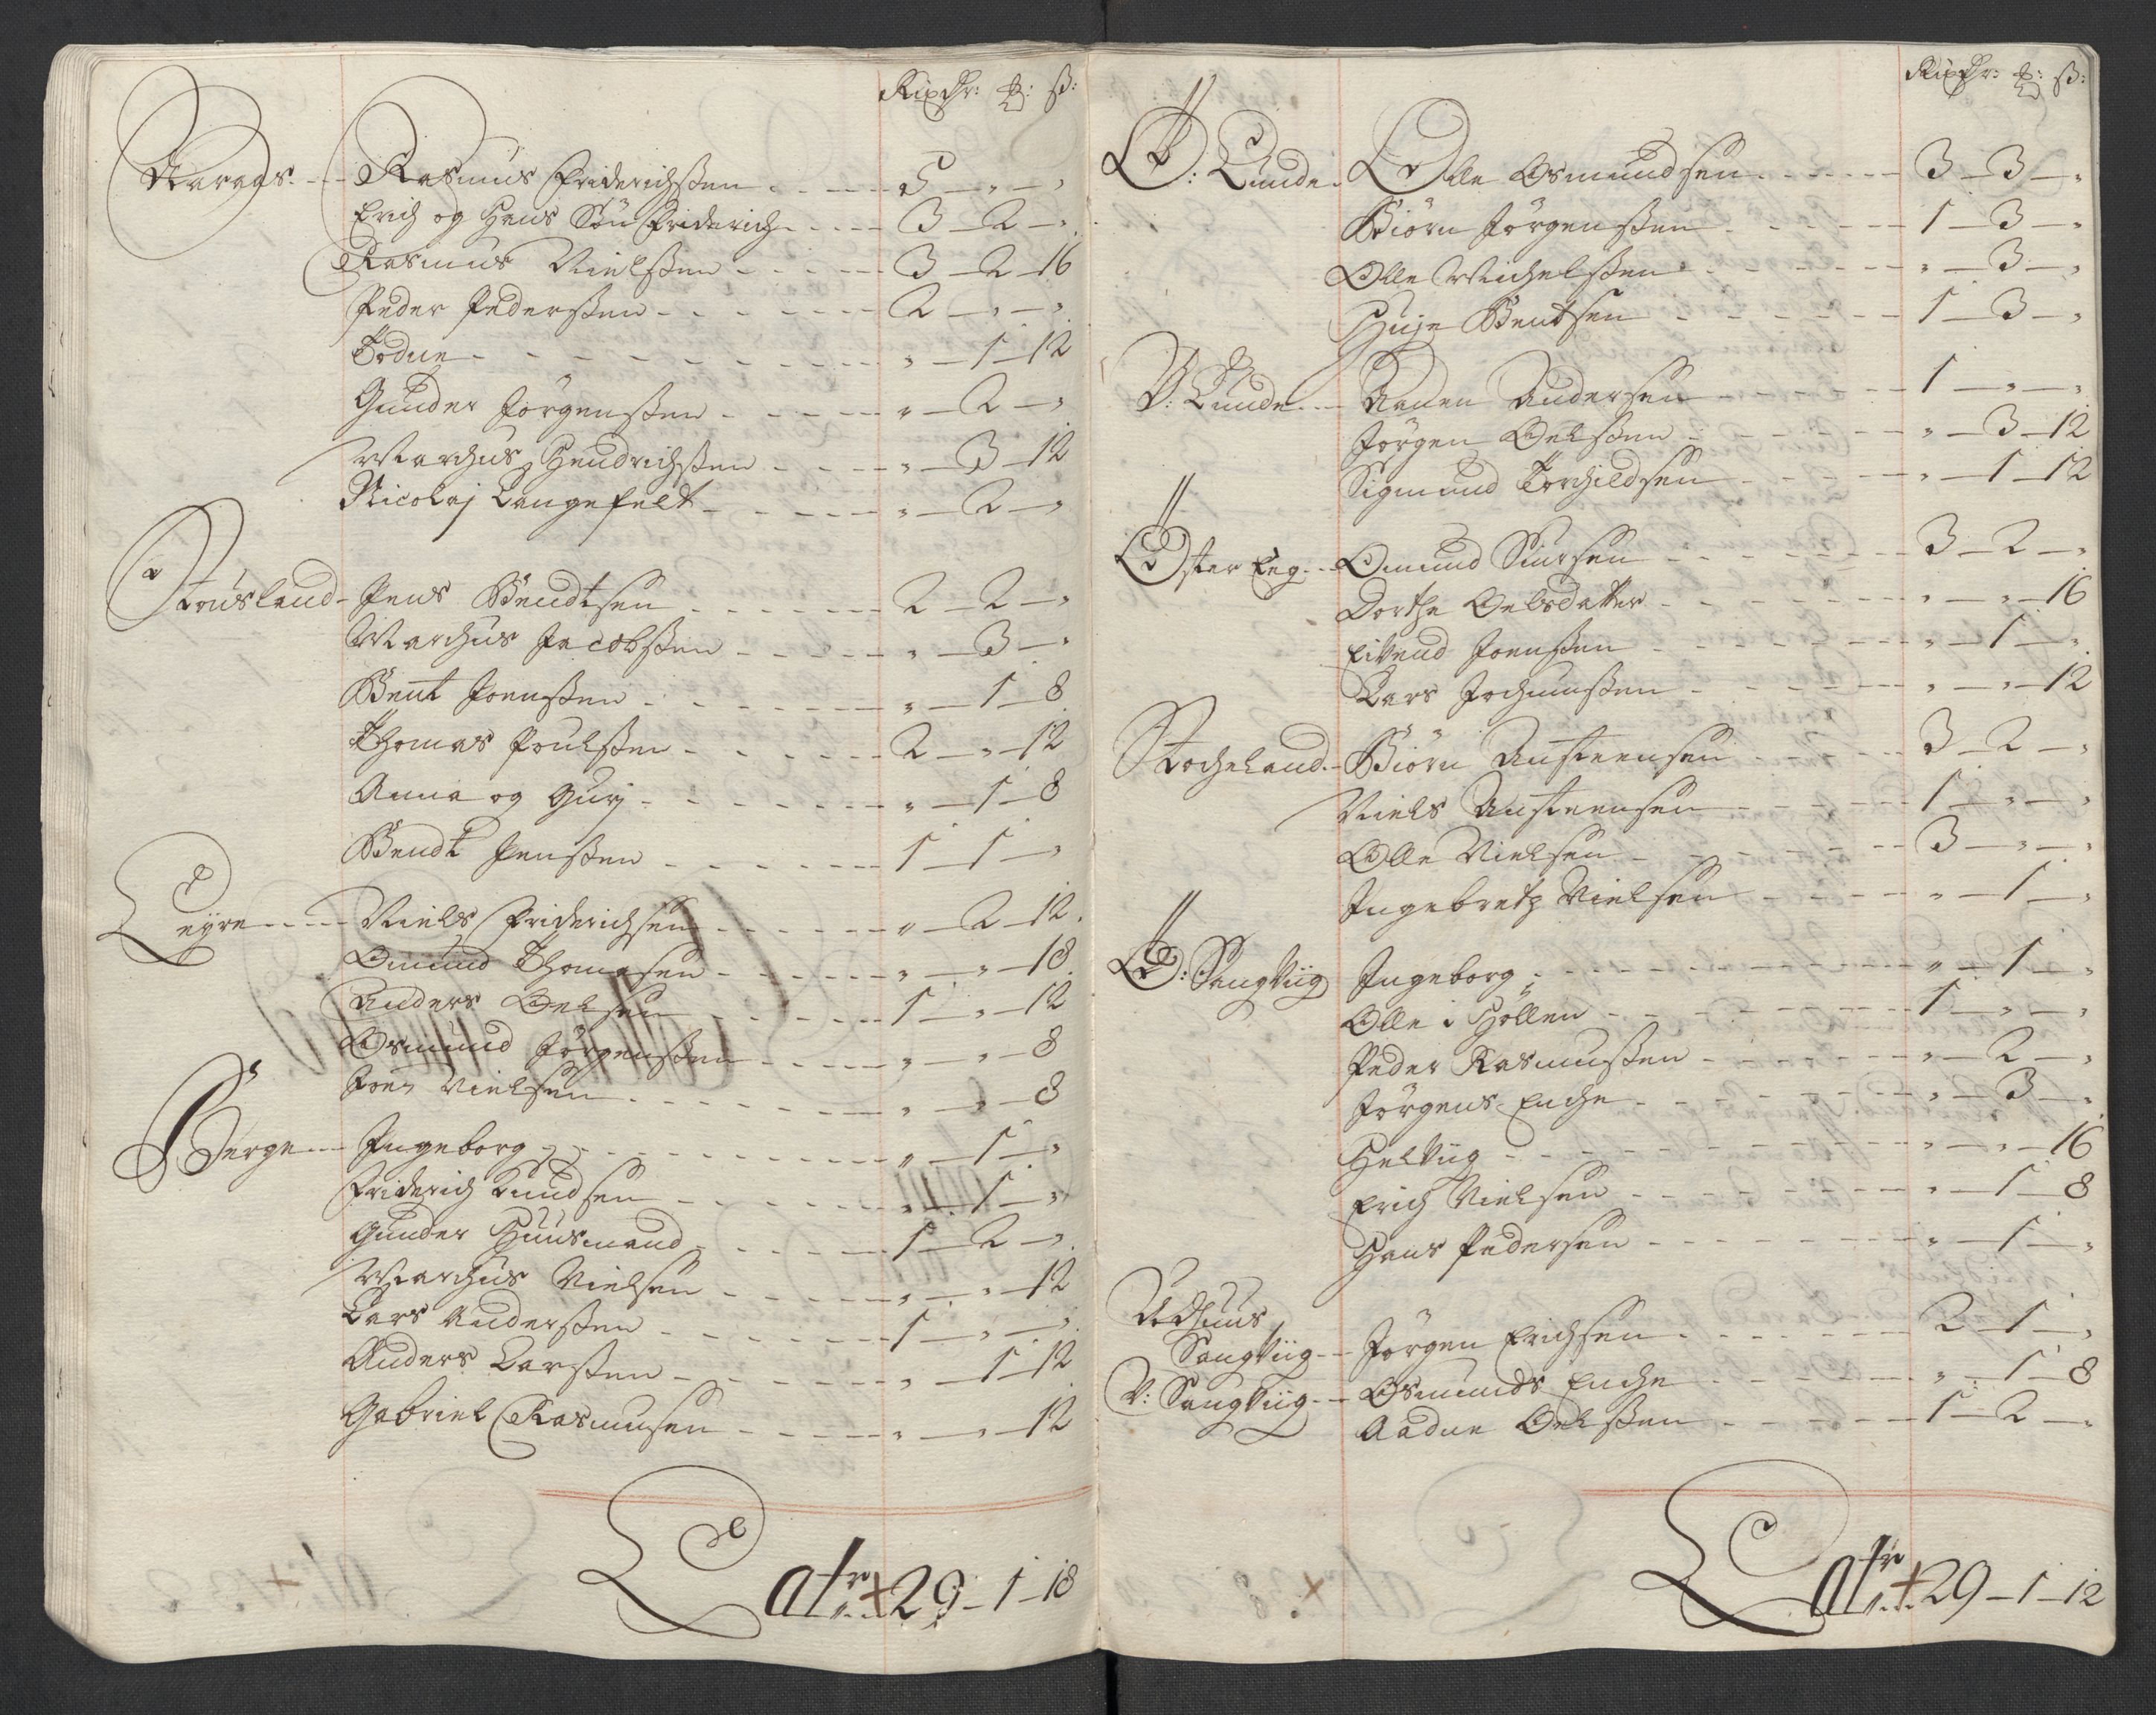 Rixdr: ⅌: ß:
Narags - Rasmus Friderichßen - 5 - " - "
Erich og Hans Søn Friderich - 3 - 2 - "
Rasmus Nielßen - 3 - 2 - 16
Peder Pederßen - 2 - " - "
Todne - " - 1 - 12
Gunder Jörgenßen - " - 2 - "
Marchus Hendrichßen - " - 3 - 12
Nicolaj Langefeldt - " - 2 - "
Stousland - Jens Bendtsen - 2 - 2 - "
Marchus Jacobßen - " - 3 - "
Bent Joenßen - " - 1 - 8
Thomas Poulßen - 2 - " - 12
Anna og Gurj - " - 1 - 8
Bendt Jenßen - 1 - 1 - "
Leyre - Niels Friderichsen - " - 2 - 12
Omund Thomasen - " - " - 18
Anders Oelsen - 1 - " - 12
Osmund Jörgenßen - " - " - 8
Joen Nielsen - " - " - 8
Berge - Ingeborg - " - 1 - "
Friderich Knudsen - " - 1 - "
Gunder Huusmand - 1 - 2 - "
Marchus Nielsen - " - " - 12
Lars Anderßen - 1 - " - "
Anders Larßen - " - 1 - 12
Gabriel Rasmusen - " - " - 12
Latr 29 - 1 - 18
Rixdr: ⅌: ß:
Ø: Lunde - Olle Osmundsen - 3 - 3 - "
Biörn Jörgenßen - 1 - 3 - "
Olle Michelßen - " - 3 - "
Huje Bentsen - 1 - 3 - "
V: Lunde - Aanen Andersen - 1 - " - "
Jörgen Oelßen - " - 3 - 12
Sigmund Torchildsen - " - 1 - 12
Øster Eeg - Omund Siursen - 3 - 2 - "
Dorthe Oelsdatter - " - " - 16
Eivend Joenßen - " - 1 - "
Lars Jochumßen - " - " - 12
Stocheland - Biörn Austeensen - 3 - 2 - "
Niels Austeensen - 1 - " - "
Olle Nielsen - 3 - " - "
Ingebretz Nielsen - " - 1 - "
Ø: Sangviig Ingeborg - " - 1 - "
Olle i Höllen - 1 - " - "
Peder Rasmußen - " - 2 - "
Jörgens Enche - " - 3 - "
Helviig - " - " - 16
Erich Nielsen - " - 1 - 8
Hans Pedersen - " - 1 - "
Udhuus
Sangviig - Jörgen Erichsen - 2 - 1 - "
V: Sangviig - Osmunds Enche - " - 1 - 8
Aadne Oelßen - 1 - 2 - "
Latr 29 - 1 - 12